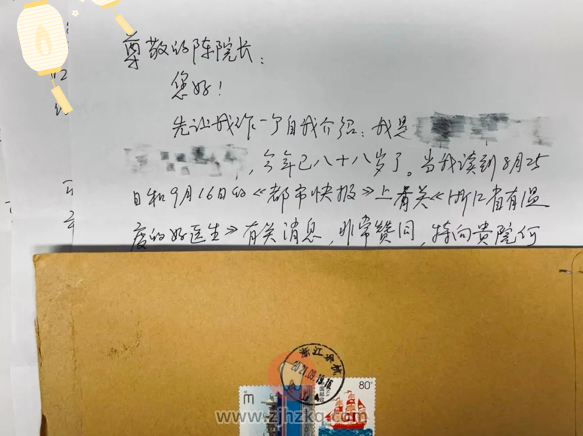 尊敬的陈院长：
您好！
先让我作一个自我介绍：我是
，今年已八十八岁了。当我读到8月25
日和9月16日的《都市快报》上有关《浙江省有温
度的好医生》有关消息，非常赞同，特向贵院何
浙江
80分
www.zjhzkq.com